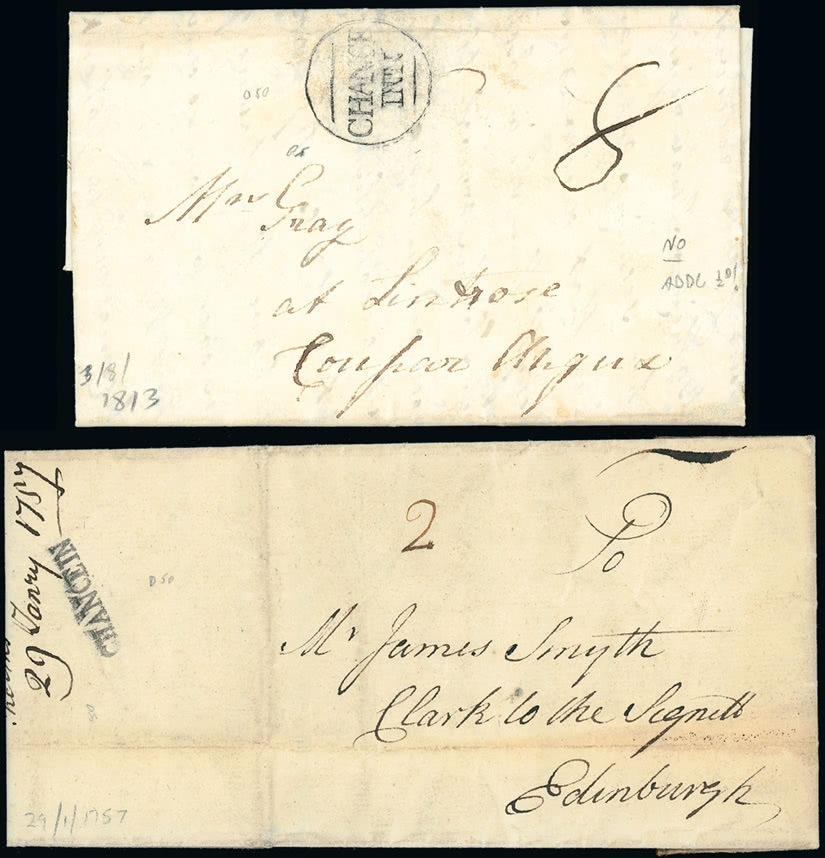 CHANCE
INN
8
D50
Mrs Gray
at Lintrose
Coupar Angus
NO
ADDL ½d!
3/8/
1813
29 Janry 1757
CHANCEIN
D50
2
To
Mr James Smyth
Clark to the Signett
Edinburgh
29/1/1757